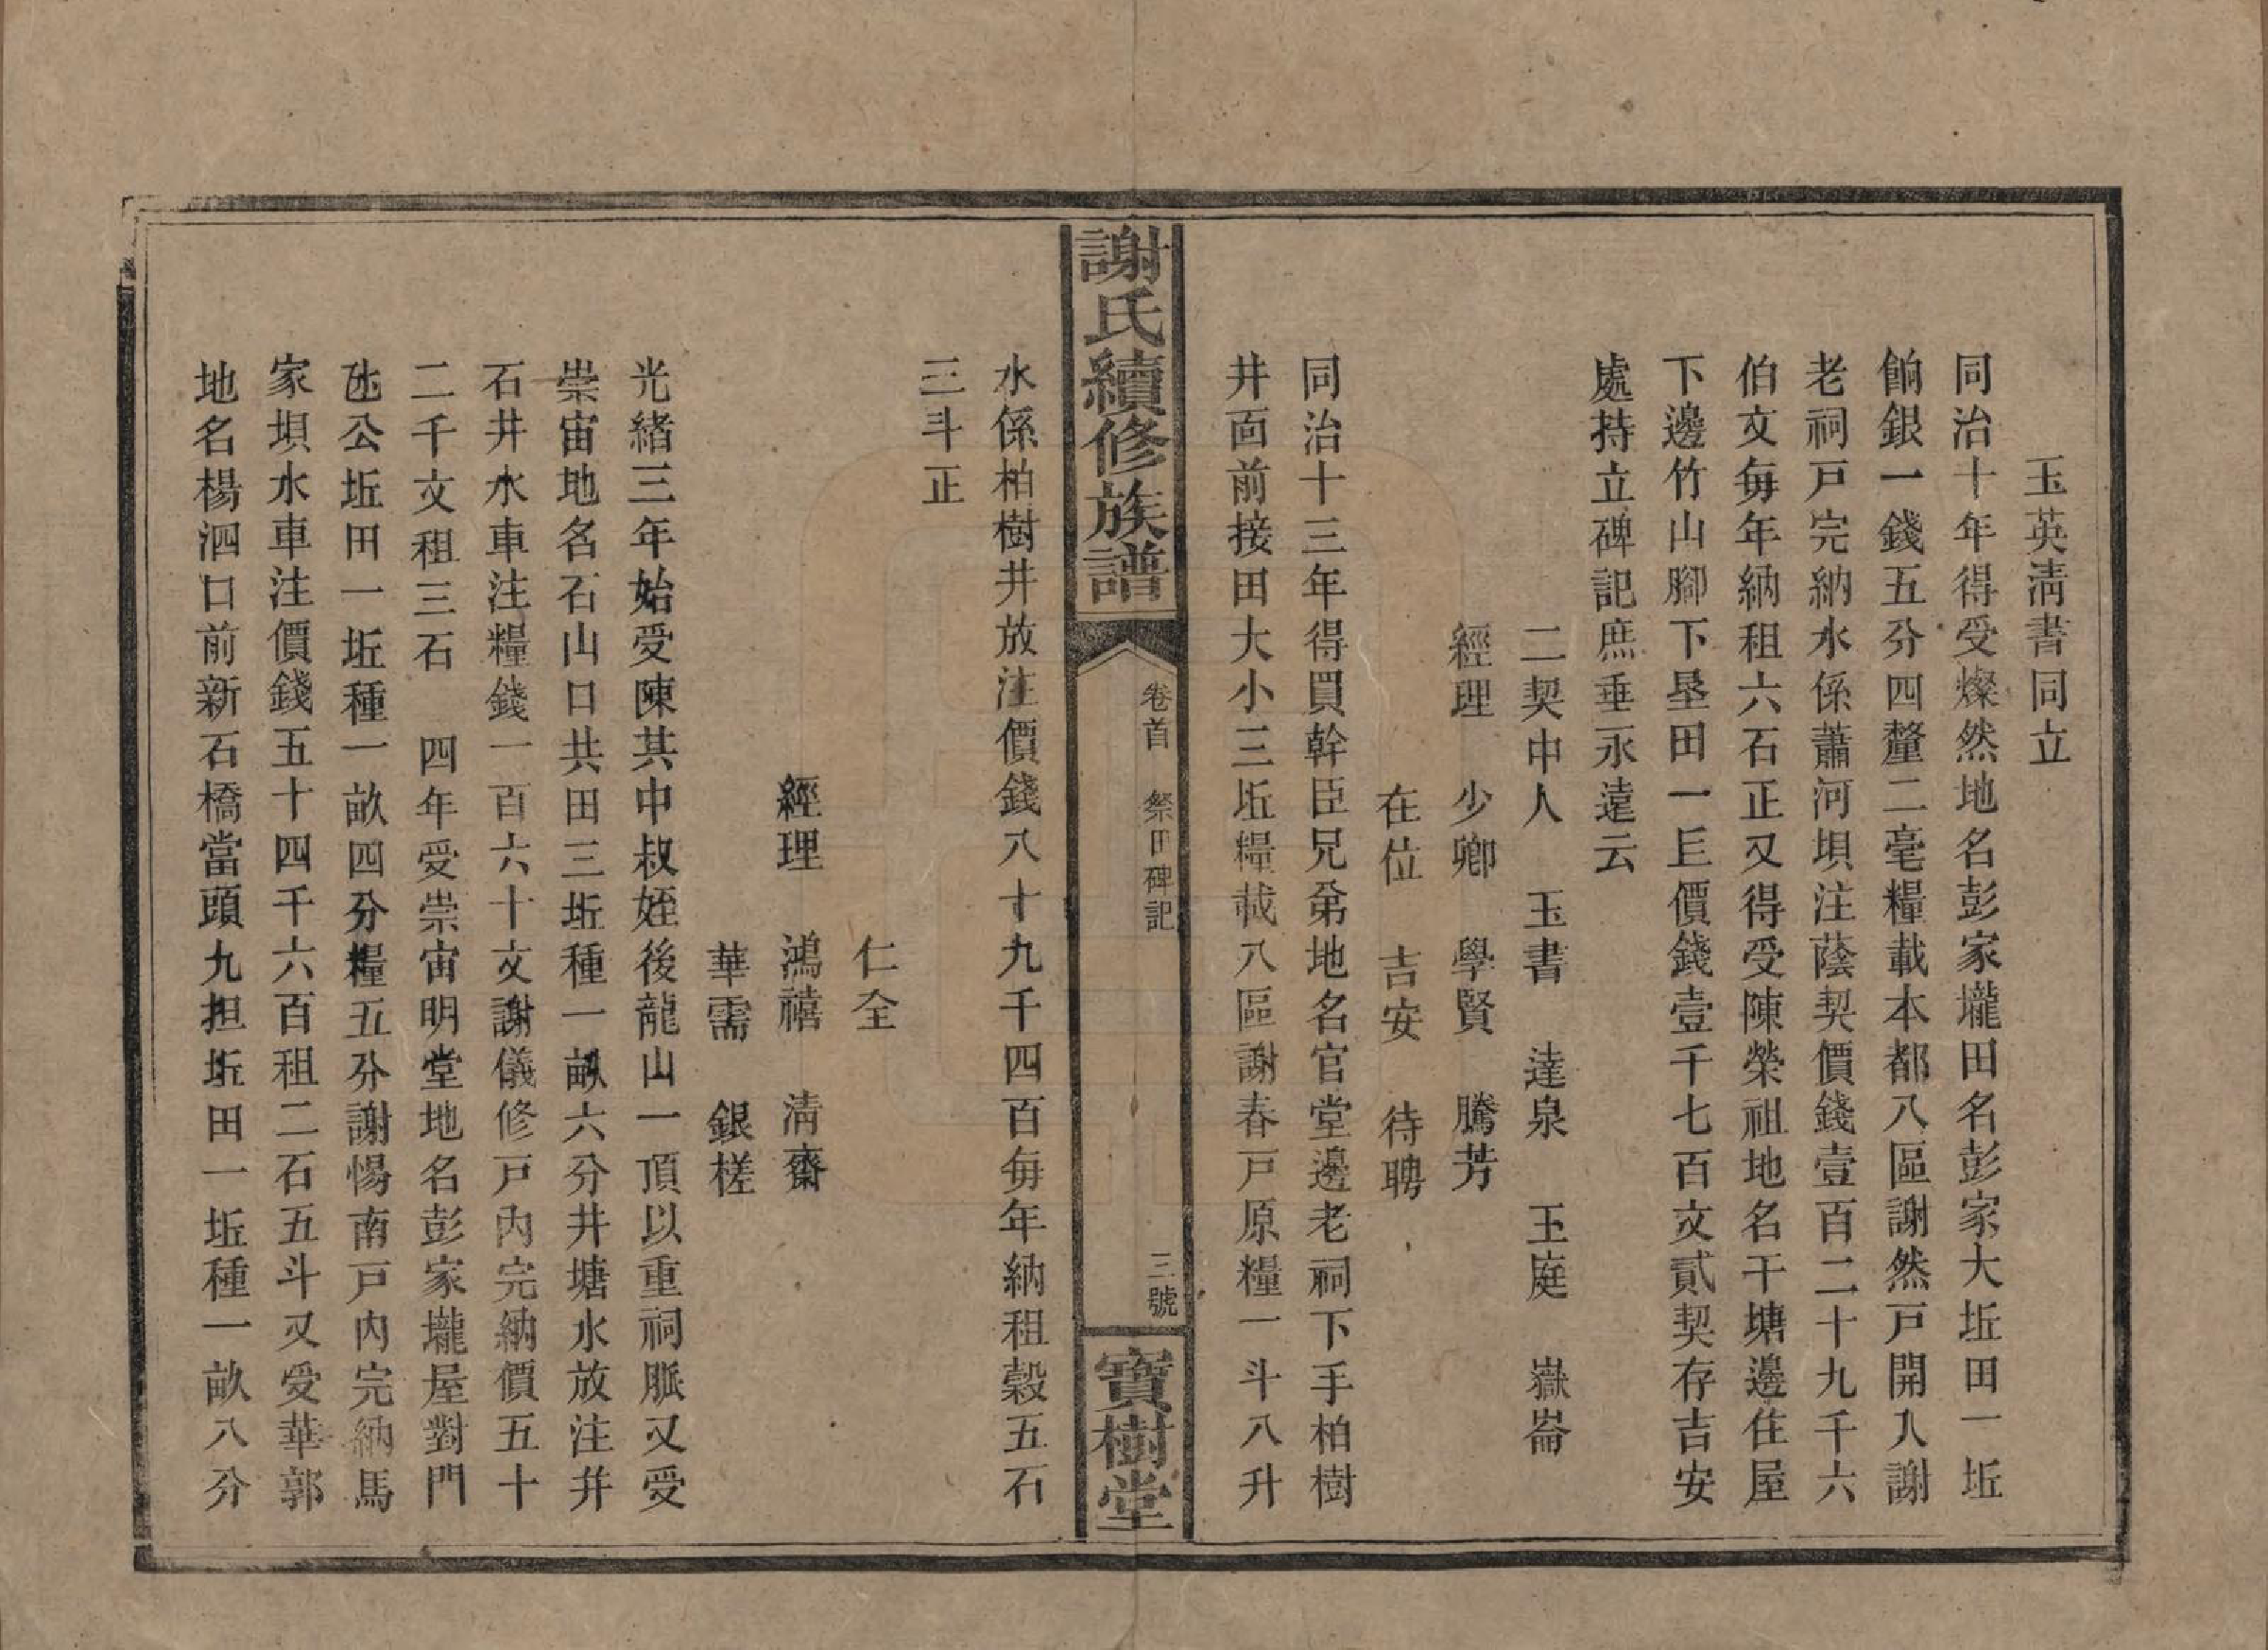 玉英清書同立
同治十年得受燦然地名彭家壠田名彭家大坵田一坵
餉銀一錢五分四釐二毫糧載本都八區謝然戶開入謝
老祠戶完納水係蕭河垻注蔭契價錢壹百二十九千六
伯文每年納租六石正又得受陳榮祖地名干塘邊住屋
下邊竹山腳下垦田一𠀋價錢壹千七百文貳契存吉安
處持立碑記庶垂永遠云
二契中人　玉書　達泉　玉庭　嶽崙
經理　少卿　學賢　騰芳
在位　吉安　待聘
同治十三年得買幹臣兄弟地名官堂邊老祠下手柏樹
井面前接田大小三坵糧載八區謝春戶原糧一斗八升
謝氏續修族譜
卷首　祭田碑記
三號
寶樹堂
水係柏樹井放注價錢八十九千四百每年納租穀五石
三斗正
仁全
經理　鴻禧　清齋
華需　銀槎
光緒三年始受陳其中叔姪後龍山一頂以重祠脈又受
崇宙地名石山口共田三坵種一畝六分井塘水放注幷
石井水車注糧錢一百六十文謝儀修戶內完納價五十
二千文租三石　四年受崇宙明堂地名彭家壠屋對門
公坵田一坵種一畝四分糧五分謝惕南戶內完納馬
家垻水車注價錢五十四千六百租二石五斗又受華郭
地名楊泗口前新石橋當頭九担坵田一坵種一畝八分